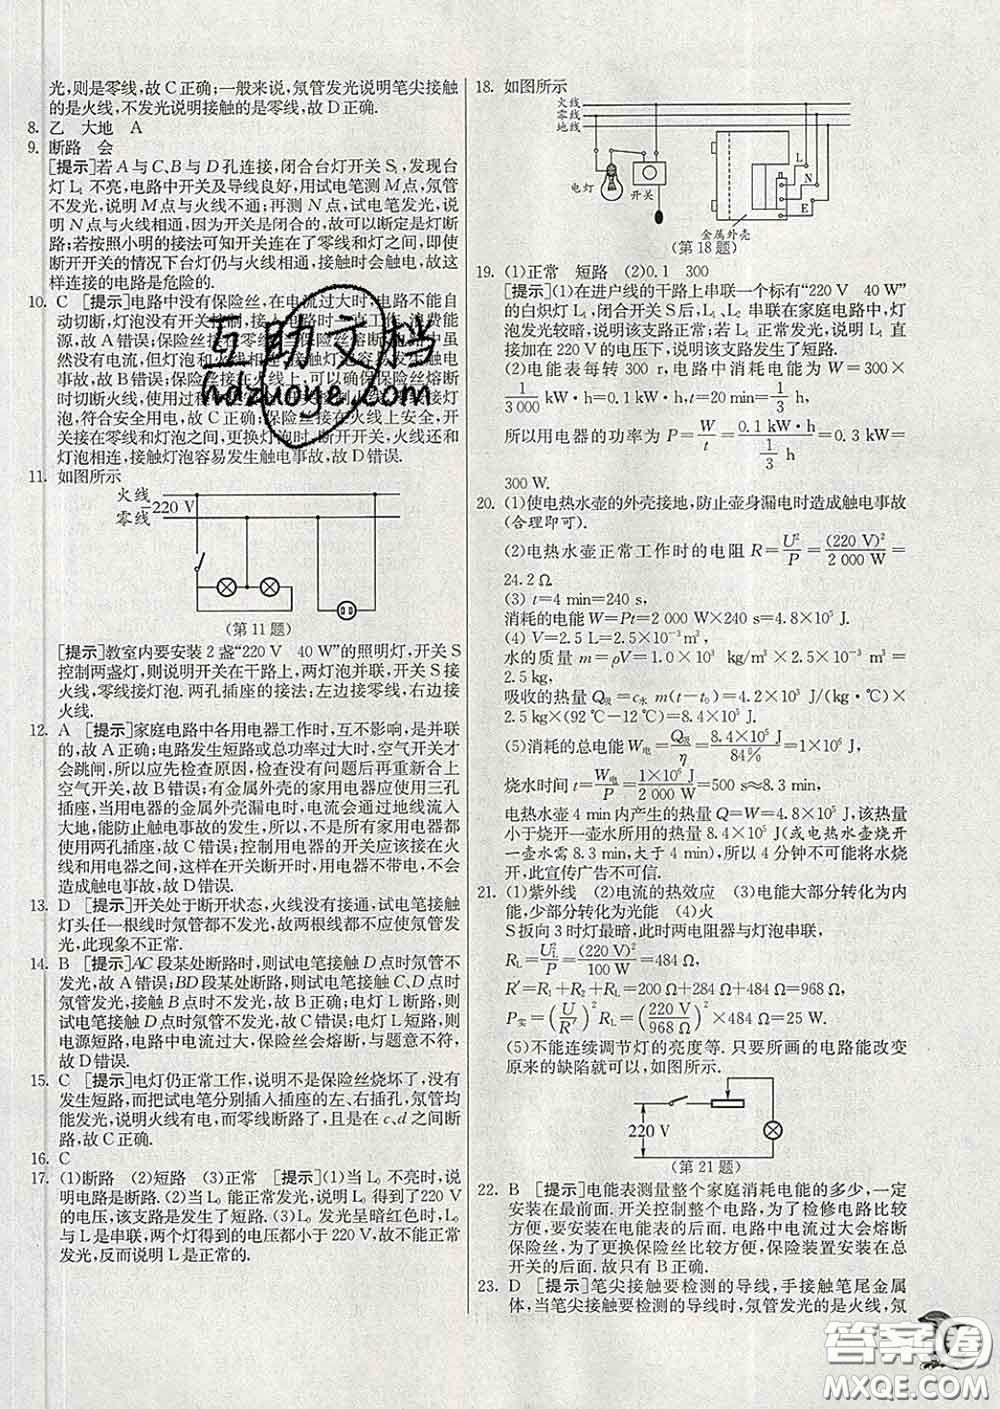 光,则是零线,故C正确;一般来说,氖管发光说明笔尖接触
的是火线,不发光说明接触的是零线,故D正确.
8. 乙 大地 A
9. 断路 会
[提示]若A与C、B与D孔连接,闭合台灯开关S,发现台
灯L₁不亮,电路中开关及导线良好,用试电笔测M点,氖管
不发光,说明M点与火线不通;再测N点,试电笔发光,说
明N点与火线相通,因为开关是闭合的,故可以断定是灯断
路;若按照小明的接法可知开关连在了零线和灯之间,即使
断开开关的情况下台灯仍与火线相通,接触时会触电,故这
样连接的电路是危险的.
10. C [提示]电路中没有保险丝,在电流过大时,电路不能自
动切断,灯泡没有开关控制,接入电路时一直工作,浪费能
然没有电流,但灯泡和火线相连,接触灯泡容易发生触电
事故,故B错误;保险丝接在火线上,可以确保保险丝熔断
时切断火线,使用过程
泡,符合安全用电,故C正确;保险丝接在火线上安全,开
关接在零线和灯泡之间,更换灯泡时,断开开关,火线还和
灯泡相连,接触灯泡容易发生触电事故,故D错误.
11. 如图所示
火线
220 V
零线
(第11题)
[提示]教室内要安装2盏“220 V 40 W”的照明灯,开关S
控制两盏灯,则说明开关在干路上,两灯泡并联,开关S接
火线,零线接灯泡. 两孔插座的接法;左边接零线,右边接
火线.
12. A [提示]家庭电路中各用电器工作时,互不影响,是并联
的,故A正确;电路发生短路或总功率过大时,空气开关才
会跳闸,所以应先检查原因,检查没有问题后再重新合上
空气开关,故B错误;有金属外壳的家用电器应使用三孔
插座,当用电器的金属外壳漏电时,电流会通过地线流入
大地,能防止触电事故的发生,所以,不是所有家用电器都
使用两孔插座,故C错误;控制用电器的开关应该接在火
线和用电器之间,这样在开关断开时,用电器不带电,不会
造成触电事故,故D错误.
13. D [提示]开关处于断开状态,火线没有接通,试电笔接触
灯头任一根线时氖管都不发光,故两根线都不应使氖管发
光,此现象不正常.
14. B [提示]AC段某处断路时,则试电笔接触D点时氖管不
发光,故A错误;BD段某处断路时,则试电笔接触C、D点时
氖管发光,接触B点时不发光,故B正确;电灯L断路时,则
试电笔接触D点时氖管不发光,故C错误;电灯L短路,则
电源短路,电路中电流过大,保险丝会熔断,与题意不符,
故D错误.
15. C [提示]电灯仍正常工作,说明不是保险丝烧坏了,没有
发生短路,而把试电笔分别插入插座的左、右插孔,氖管均
能发光,说明火线有电,而零线断路了,且是在c、d之间断
路,故C正确.
16. C
17. (1)断路 (2)短路 (3)正常 [提示](1)当L₀不亮时,说
明电路是断路.(2)当L₀能正常发光,说明L₀得到了220 V
的电压,该支路是发生了短路.(3)L₀发光呈暗红色时,L₀
与L是串联,两个灯得到的电压都小于220 V,故不能正常
发光,反而说明L是正常的.
18. 如图所示
火线
零线
地线
电灯
开关
L
N
E
金属外壳
(第18题)
19. (1)正常 短路 (2)0.1 300
[提示](1)在进户线的干路上串联一个标有“220 V 40 W”
的白炽灯L₀,闭合开关S后,L₁、L₀串联在家庭电路中,灯
泡发光较暗,说明该支路正常;若L₀正常发光,说明L₀直
接加在220 V的电压下,说明该支路发生了短路.
(2)电能表每转300 r,电路中消耗电能为W=300×
1/3 000 kW·h=0.1 kW·h,t=20 min=1/3 h,
所以用电器的功率为P=W/t=(0.1 kW·h)/(1/3 h)=0.3 kW=
300 W.
20. (1)使电热水壶的外壳接地,防止壶身漏电时造成触电事故
(合理即可).
(2)电热水壶正常工作时的电阻R=U²/P=(220 V)²/2 000 W=
24.2 Ω.
(3) t=4 min=240 s,
消耗的电能W=Pt=2 000 W×240 s=4.8×10⁵ J.
(4) V=2.5 L=2.5×10⁻³m³,
水的质量m=ρV=1.0×10³ kg/m³×2.5×10⁻³ m³=
2.5 kg,
吸收的热量Q吸=c水 m(t-t₀)=4.2×10³ J/(kg·℃)×
2.5 kg×(92 ℃-12 ℃)=8.4×10⁵ J.
(5)消耗的总电能W电=Q吸/η=(8.4×10⁵ J)/84%=1×10⁶ J,
烧水时间t=W电/P=(1×10⁶ J)/(2 000 W)=500 s≈8.3 min,
电热水壶4 min内产生的热量Q=W=4.8×10⁵ J,该热量
小于烧开一壶水所用的热量8.4×10⁵ J(或电热水壶烧开
一壶水需8.3 min,大于4 min),所以4分钟不可能将水烧
开,此宣传广告不可信.
21. (1)紫外线 (2)电流的热效应 (3)电能大部分转化为内
能,少部分转化为光能 (4)火
S扳向3时灯最暗,此时两电阻器与灯泡串联,
R_L=U_L²/P=(220 V)²/100 W=484 Ω,
R′=R₁+R₂+R_L=200 Ω+284 Ω+484 Ω=968 Ω,
P实=(U/R′)²R_L=(220 V/968 Ω)²×484 Ω=25 W.
(5)不能连续调节灯的亮度等. 只要所画的电路能改变
原来的缺陷就可以,如图所示.
220 V
(第21题)
22. B [提示]电能表测量整个家庭消耗电能的多少,一定
安装在最前面. 开关控制整个电路,为了检修电路比较方
便,要安装在电能表的后面. 电路中电流过大会熔断
保险丝,为了更换保险丝比较方便,保险装置安装在总
开关的后面.故只有B正确.
23. D [提示]笔尖接触要检测的导线,手接触笔尾金属
体,当笔尖接触要检测的导线时,氖管发光的是火线,氖
互助文档
hdzuoye.com
答案圈
MXQE.COM